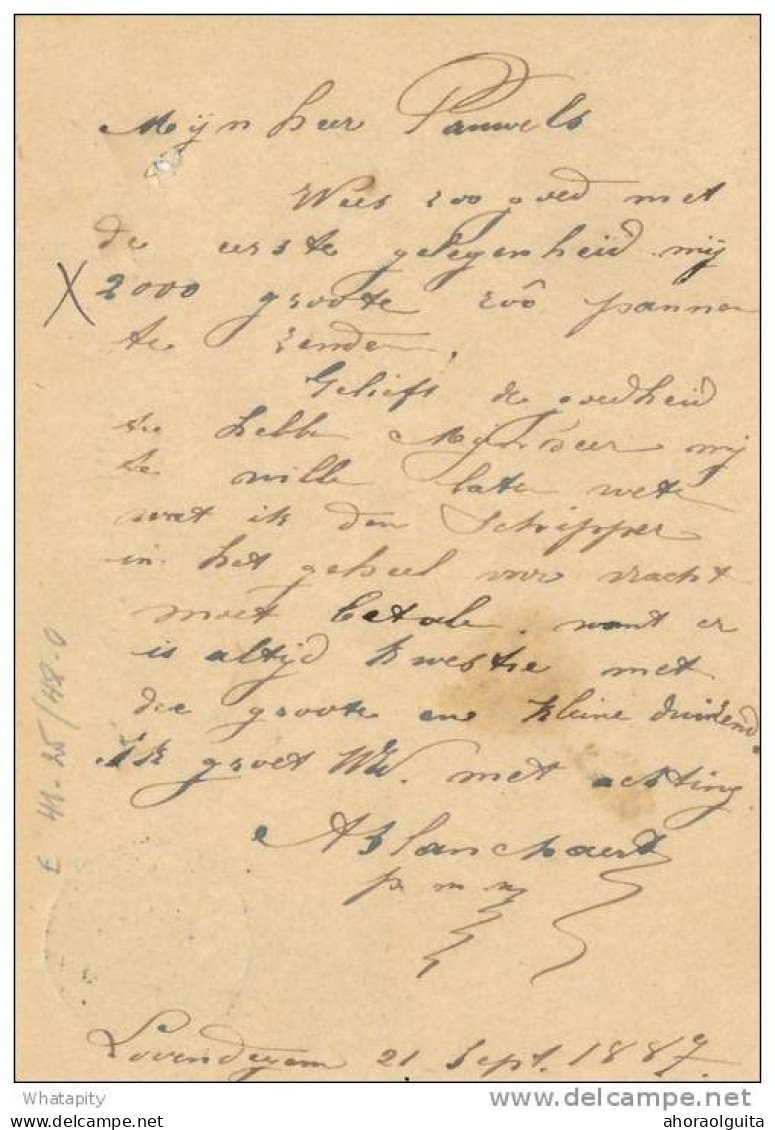 Mijnheer Pauwels
Wees zoo goed met
de eerste gelegenheid mij
X 2000 groote roô pannen
te zenden,
Gelieft de goedheid
te hebben Mijnheer mij
te willen laten weten
wat ik den Schipper
in het geheel voor vracht
moet betalen. want er
is altijd kwestie met
die groote en kleine duizend.
Ik groet UW. met achting
A Blanchaert
Lovendegem 21 Sept. 1887.
£ 41-25/48-0
Whatapity
delcampe.net
ahoraolguita